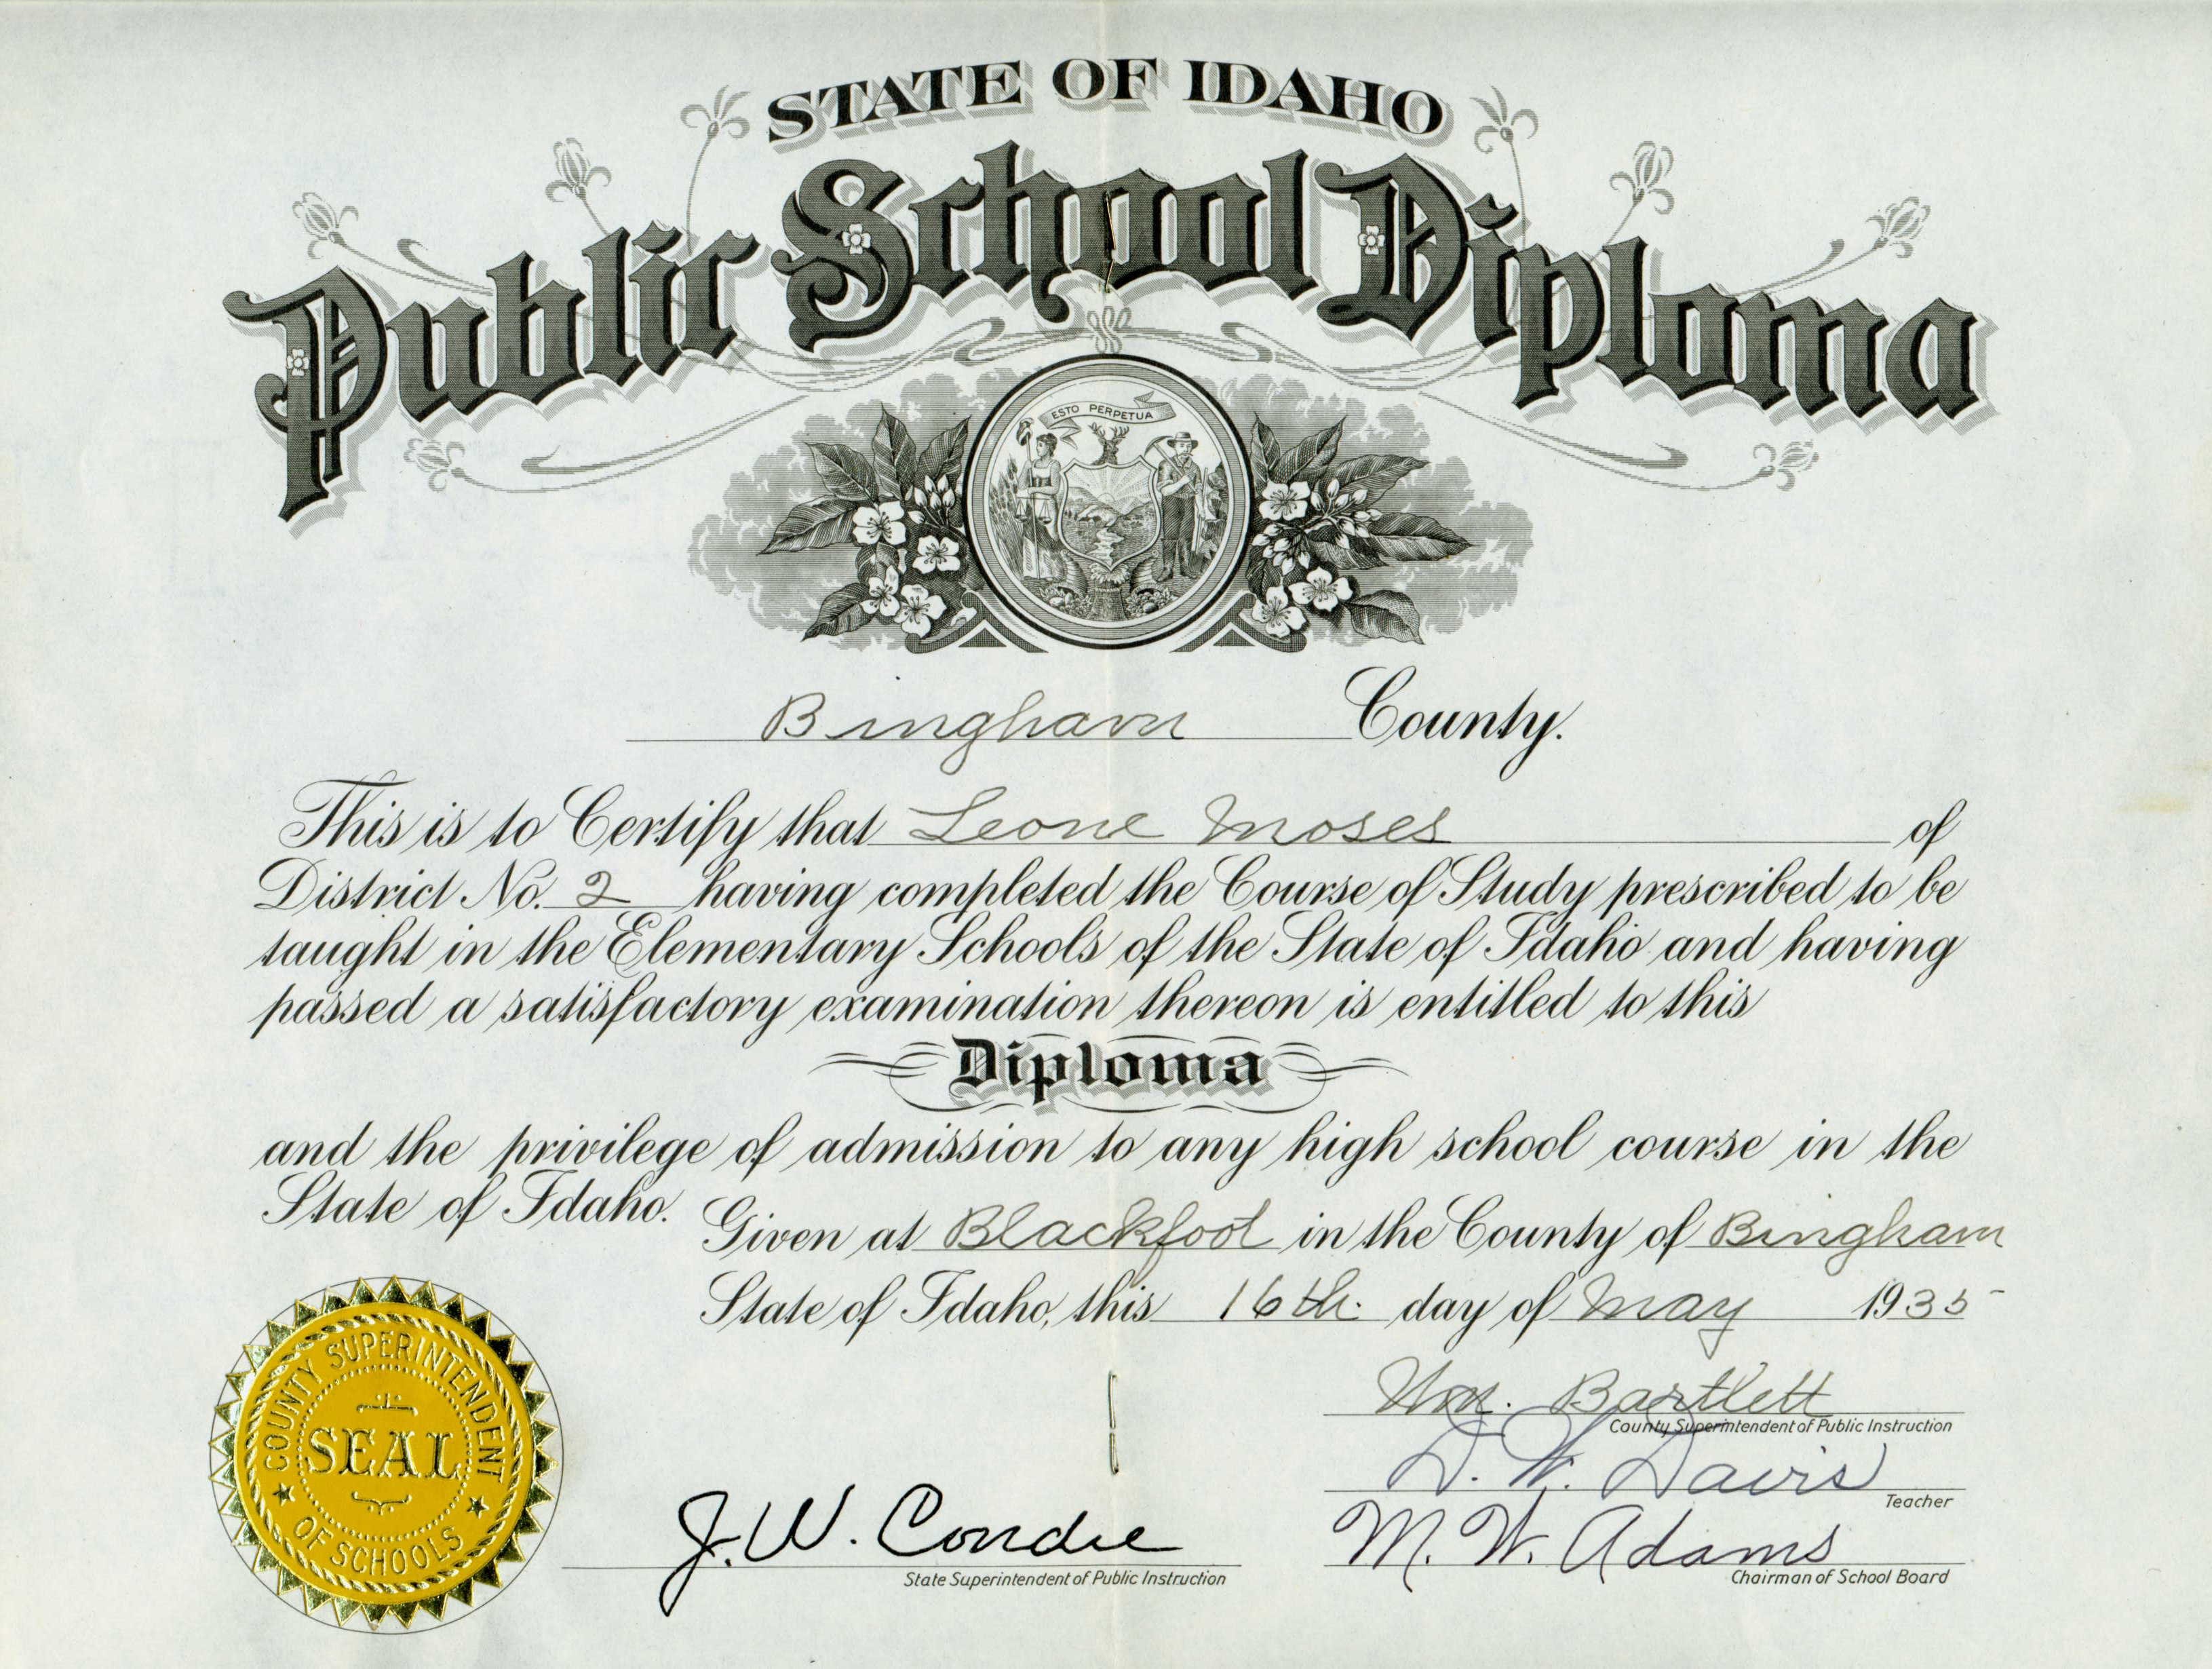 STATE OF IDAHO
Public School Diploma
ESTO PERPETUA
Bingham County.
This is to Certify that Leone Moses of
District No. 2 having completed the Course of Study prescribed to be
taught in the Elementary Schools of the State of Idaho and having
passed a satisfactory examination thereon is entitled to this
Diploma
and the privilege of admission to any high school course in the
State of Idaho.
Given at Blackfoot in the County of Bingham
State of Idaho, this 16th. day of May 1935
Wm. Bartlett
County Superintendent of Public Instruction
D. W. Davis
Teacher
M. W. Adams
Chairman of School Board
J. W. Condie
State Superintendent of Public Instruction
COUNTY SUPERINTENDENT
SEAL
OF SCHOOLS